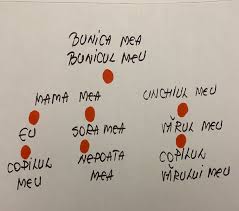 BUNICA MEA
BUNICUL MEU
MAMA MEA
UNCHIUL MEU
EU
SORA MEA
VĂRUL MEU
COPILUL
MEU
NEPOATA
MEA
COPILUL
VĂRULUI MEU